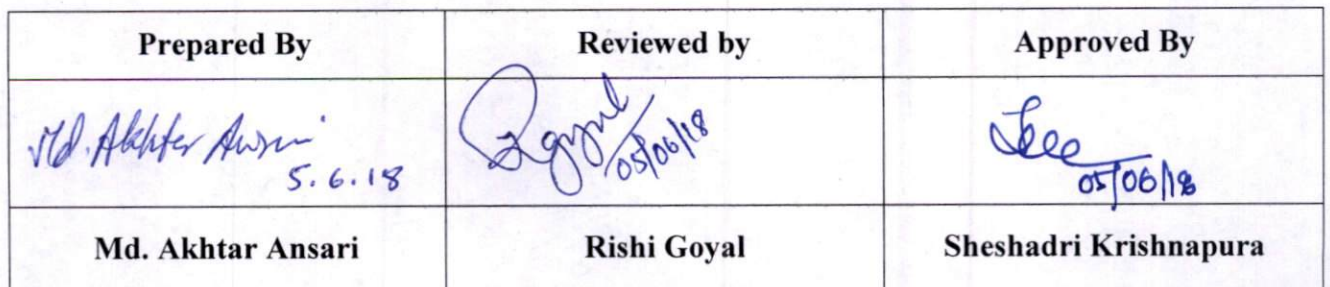 Prepared By Reviewed by Approved By
Md. Akhter Ansari Rgoyal
5.6.18 05/06/18 05/06/18
Md. Akhtar Ansari Rishi Goyal Sheshadri Krishnapura